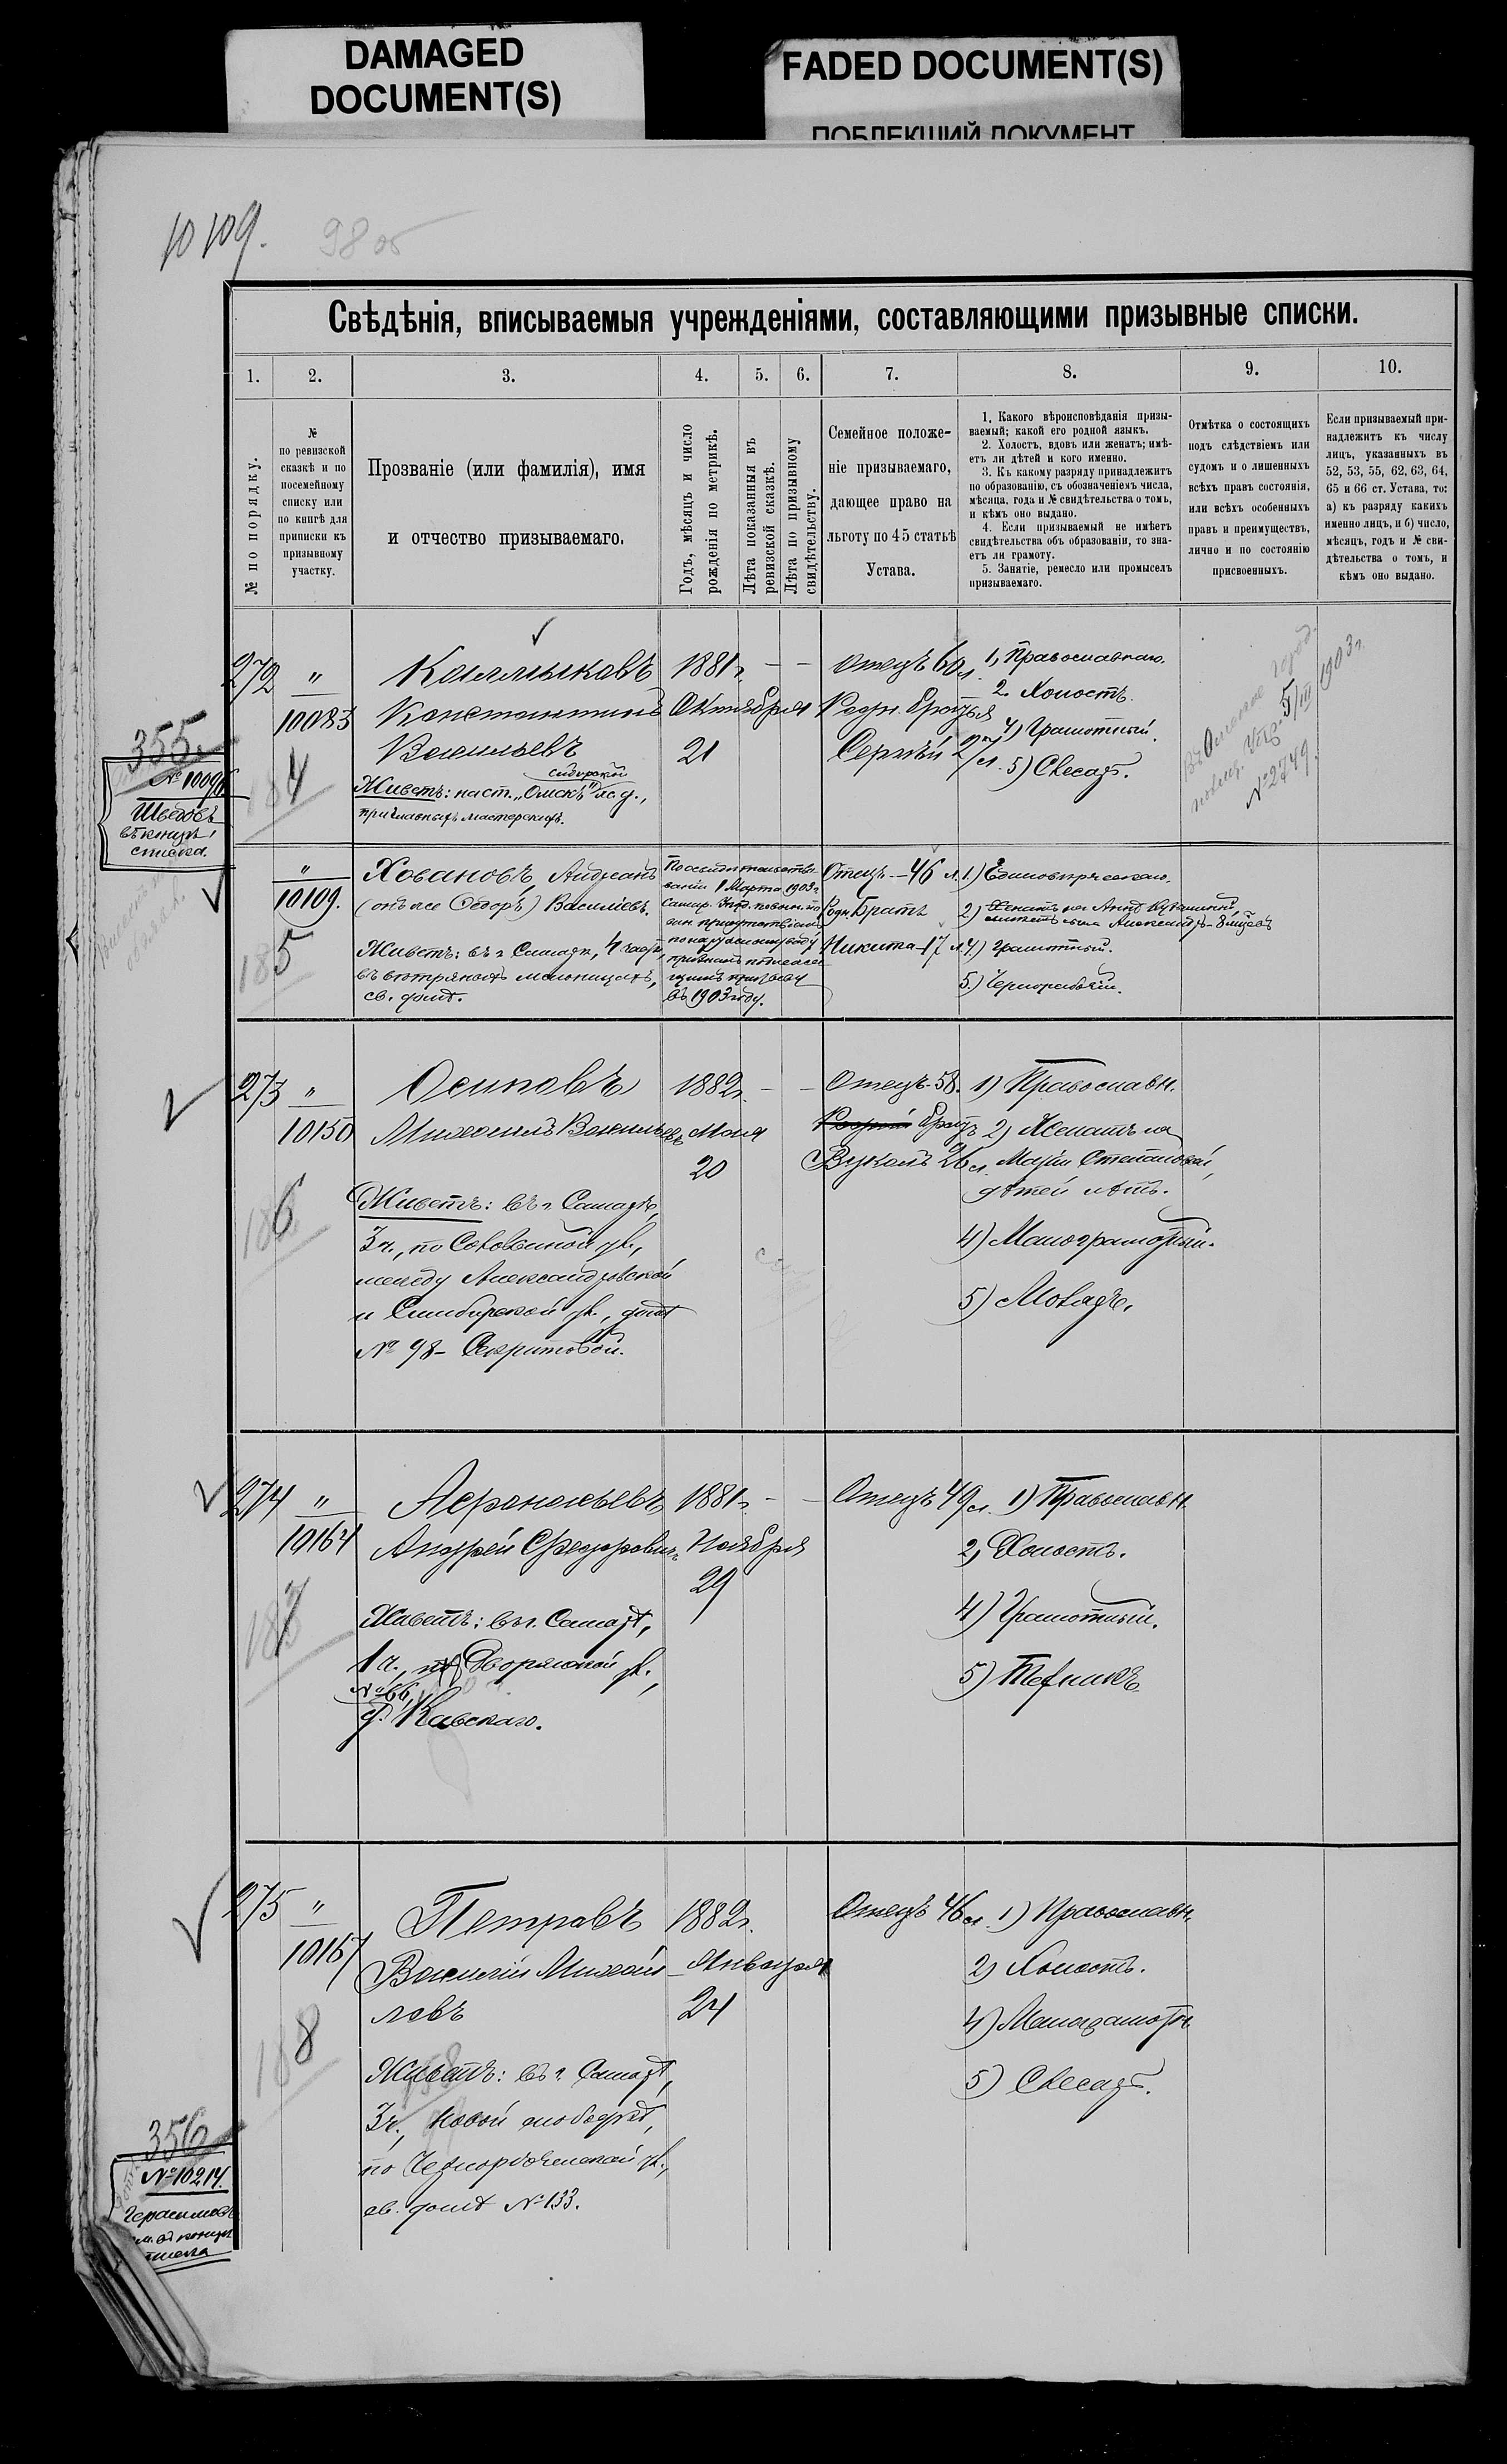 DAMAGED
DOCUMENT(S)
FADED DOCUMENT(S)
ПОБЛЕКШИЙ ДОКУМЕНТ
10109.
98 об
Свѣдѣнія, вписываемыя учрежденіями, составляющими призывные списки.
1. 2. 3. 4. 5. 6. 7. 8. 9. 10.
№ по порядку.
№
по ревизской
сказкѣ и по
посемейному
списку или
по книгѣ для
приписки къ
призывному
участку.
Прозваніе (или фамилія), имя
и отчество призываемаго.
Годъ, мѣсяцъ и число
рожденія по метрикѣ.
Лѣта показанныя въ
ревизской сказкѣ.
Лѣта по призывному
свидѣтельству.
Семейное положе-
ніе призываемаго,
дающее право на
льготу по 45 статьѣ
Устава.
1. Какого вѣроисповѣданія призы-
ваемый; какой его родной языкъ.
2. Холостъ, вдовъ или женатъ; имѣ-
етъ ли дѣтей и кого именно.
3. Къ какому разряду принадлежитъ
по образованію, съ обозначеніемъ числа,
мѣсяца, года и № свидѣтельства о томъ,
и кѣмъ оно выдано.
4. Если призываемый не имѣетъ
свидѣтельства объ образованіи, то зна-
етъ ли грамоту.
5. Занятіе, ремесло или промыселъ
призываемаго.
Отмѣтка о состоящихъ
подъ слѣдствіемъ или
судомъ и о лишенныхъ
всѣхъ правъ состоянія,
или всѣхъ особенныхъ
правъ и преимуществъ,
лично и по состоянію
присвоенныхъ.
Если призываемый при-
надлежитъ къ числу
лицъ, указанныхъ въ
52, 53, 55, 62, 63, 64,
65 и 66 ст. Устава, то:
а) къ разряду какихъ
именно лицъ, и б) число,
мѣсяцъ, годъ и № сви-
дѣтельства о томъ, и
кѣмъ оно выдано.
272 "
10083
184
Калмыковъ
Константинъ
Васильевъ
Живетъ: на ст. „Омскъ" сибирской ж. д.,
при главныхъ мастерскихъ.
1881 г.
Октября
21
— —
Отецъ 60 л.
Родн. братья
Сергѣй 27 л.
1) Православнаго.
2. Холостъ.
4) Грамотный.
5) Слесарь.
5/III 1903 г.
№ 2749.
355.
№ 10096
Шведовъ
въ концѣ
списка.
"
10109.
185
Ховановъ,
(онъ же Ѳедоръ) Васильевъ.
Живетъ: въ г. Самарѣ, 4 части,
въ вѣтряныхъ мельницахъ,
св. домѣ.
1 Марта 1903 г.
по наружному виду
признанъ подлежа-
щимъ призыву
въ 1903 году.
Отецъ — 46 л.
Родн. Братъ
Никита — 17 л.
1.) Единовѣрческаго.
4.) Грамотный.
5.) Чернорабочій.
273 "
10150
186
Осиповъ
Михаилъ Васильевъ
Живетъ: въ г. Самарѣ,
3 ч., по Соловьиной ул.,
между Александровской
и Симбирской ул., домъ
№ 98 —
1882 г.
Мая
20
— —
Отецъ — 58.
Родной братъ
26 л.
1) Православн.
2) Женатъ на
Маріи Степановой,
дѣтей нѣтъ.
4) Малограмотный.
5) Маляръ.
274 "
10164
187
Аѳанасьевъ
Андрей Ѳедоровъ
Живетъ: въ г. Самарѣ,
1 ч., по Дворянской ул.,
№ 66,
д.
1881 г.
Ноября
29
— —
Отецъ 49 л.
1) Православн.
2) Холостъ.
4) Грамотный.
5) Техникъ
275 "
10167
188
Петровъ
Василій Михай-
ловъ
Живетъ: въ г. Самарѣ,
3 ч., Новой слободкѣ,
по Чернорѣченской ул.,
св. домѣ № 133.
1882 г.
Января
24
Отецъ 46 л.
1) Православн.
2) Холостъ.
4) Малограмотн.
5) Слесарь.
356
№ 10214.
Герасимовъ
см. въ концѣ
списка